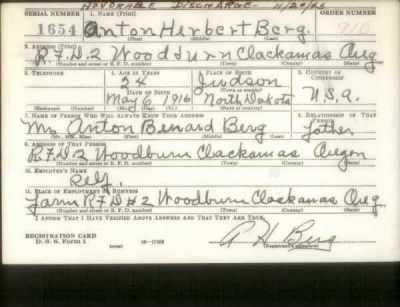 HONORABLE DISCHARGE - 11/20/45
SERIAL NUMBER 1. NAME (Print) ORDER NUMBER
1654 Anton Herbert Berg. 910
(First) (Middle) (Last)
2. ADDRESS (Print)
R.F.D.2 Woodburn Clackamas Oreg
(Number and street or R. F. D. number) (Town) (County) (State)
3. TELEPHONE 4. AGE IN YEARS 5. PLACE OF BIRTH 6. COUNTRY OF CITIZENSHIP
24 Judson
DATE OF BIRTH (Town or county)
May 6 1916 North Dakota U.S.A.
(Exchange) (Number) (Mo.) (Day) (Yr.) (State or country)
7. NAME OF PERSON WHO WILL ALWAYS KNOW YOUR ADDRESS 8. RELATIONSHIP OF THAT PERSON
Mr. Anton Benard Berg Father
(Mr., Mrs., Miss) (First) (Middle) (Last)
9. ADDRESS OF THAT PERSON
R.F.D.2 Woodburn Clackamas Oregon
(Number and street or R. F. D. number) (Town) (County) (State)
10. EMPLOYER'S NAME
Self
11. PLACE OF EMPLOYMENT OR BUSINESS
Farm R.F.D #2 Woodburn Clackamas Oreg.
(Number and street or R. F. D. number) (Town) (County) (State)
I AFFIRM THAT I HAVE VERIFIED ABOVE ANSWERS AND THAT THEY ARE TRUE.
REGISTRATION CARD
D. S. S. Form 1 (over) 16-17105
A H Berg
(Registrant's signature)